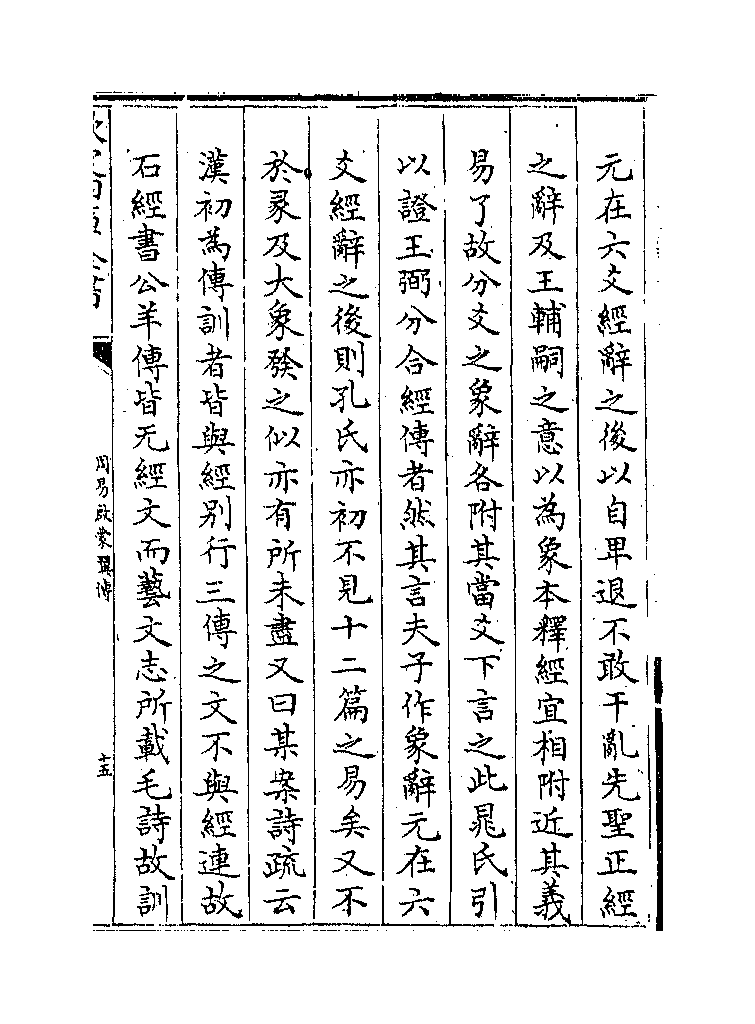 元在六爻經辭之後以自卑退不敢干亂先聖正經
之辭及王輔嗣之意以為象本釋經宜相附近其義
易了故分爻之象辭各附其當爻下言之此晁氏引
以證王弼分合經傳者然其言夫子作象辭元在六
爻經辭之後則孔氏亦初不見十二篇之易矣又不
於彖及大象發之似亦有所未盡又曰某案詩疏云
漢初為傳訓者皆與經別行三傳之文不與經連故
石經書公羊傳皆无經文而藝文志所載毛詩故訓
周易啟蒙翼傳
十五